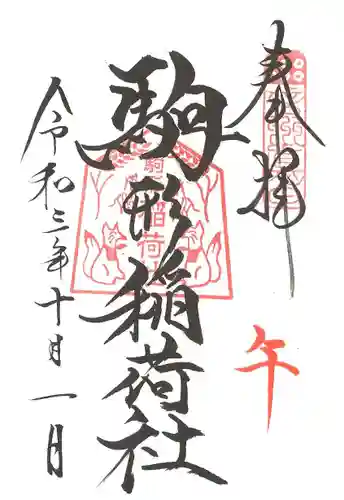 奉拝
午
駒形稲荷社
駒形
稲荷社
令和三年十月一日